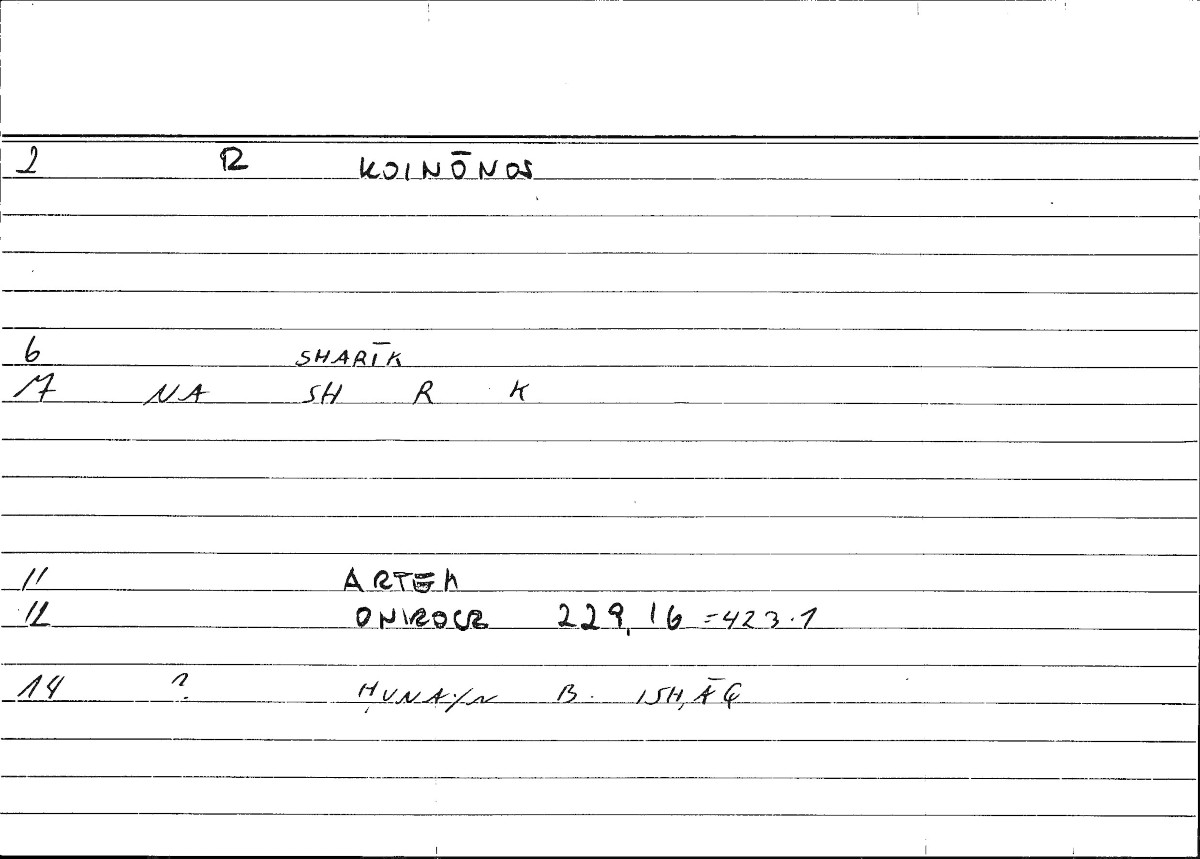 2 R KOINŌNOS
6 SHARĪK
17 NA SH R K
11 ARTEM
12 ONIROCR 229,16 =423.1
14 ? ḤUNAYN B. ISḤĀQ